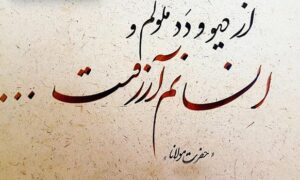 از دیو و دَد ملولم و
انسانم آرزوست ...
« حضرت مولانا »